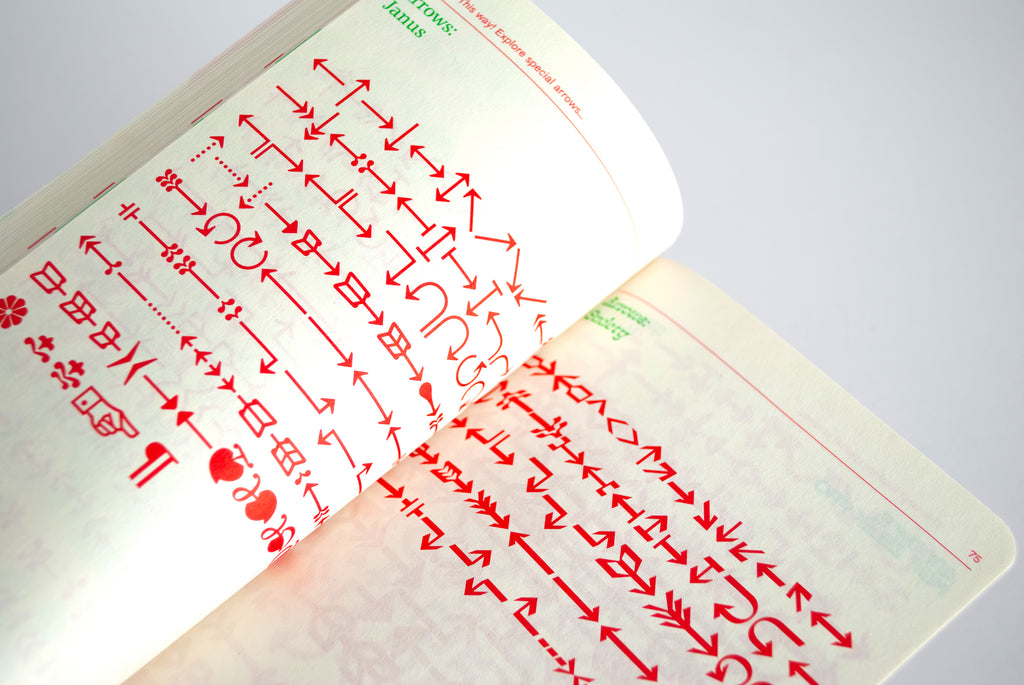 This way! Explore special arrows...
Arrows:
Janus
Arrows:
75